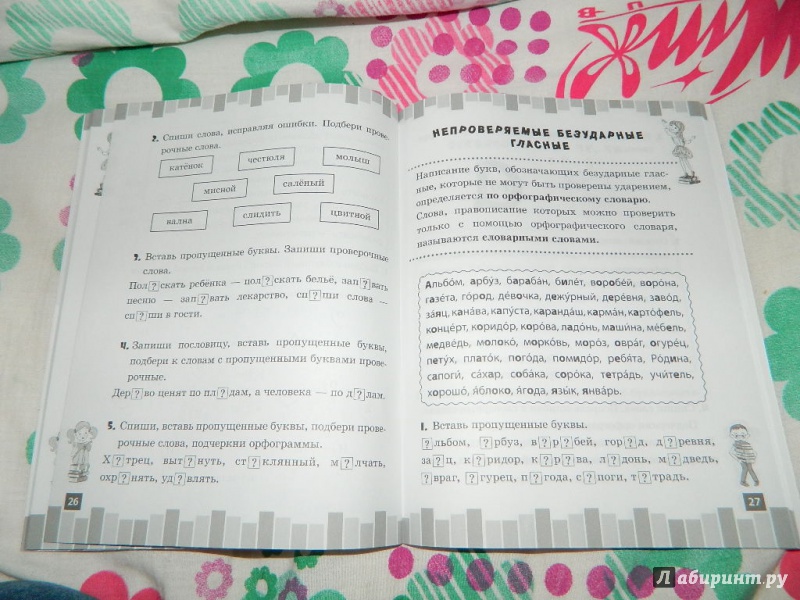 2. Спиши слова, исправляя ошибки. Подбери прове-
рочные слова.
катёнок
честюля
молыш
мисной
салёный
вална
слидить
цвитной
3. Вставь пропущенные буквы. Запиши проверочные
слова.
Пол?скать ребёнка — пол?скать бельё, зап?вать
песню — зап?вать лекарство, сп?ши слова —
сп?ши в гости.
4. Запиши пословицу, вставь пропущенные буквы,
подбери к словам с пропущенными буквами прове-
рочные.
Дер?во ценят по пл?дам, а человека — по д?лам.
5. Спиши, вставь пропущенные буквы, подбери прове-
рочные слова, подчеркни орфограммы.
Х?трец, выт?нуть, ст?клянный, м?лчать,
охр?нять, уд?влять.
26
НЕПРОВЕРЯЕМЫЕ БЕЗУДАРНЫЕ
ГЛАСНЫЕ
Написание букв, обозначающих безударные глас-
ные, которые не могут быть проверены ударением,
определяется по орфографическому словарю.
Слова, правописание которых можно проверить
только с помощью орфографического словаря,
называются словарными словами.
Альбо́м, арбу́з, бараба́н, биле́т, воробе́й, воро́на,
газе́та, го́род, де́вочка, дежу́рный, дере́вня, заво́д,
за́яц, кана́ва, капу́ста, каранда́ш, карма́н, карто́фель,
конце́рт, коридо́р, коро́ва, ладо́нь, маши́на, ме́бель,
медве́дь, молоко́, морко́вь, моро́з, овра́г, огуре́ц,
пету́х, плато́к, пого́да, помидо́р, ребя́та, Ро́дина,
сапоги́, са́хар, соба́ка, соро́ка, тетра́дь, учи́тель,
хорошо́, я́блоко, я́года, язы́к, янва́рь.
1. Вставь пропущенные буквы.
?льбом, ?рбуз, в?р?бей, гор?д, д?ревня,
за?ц, к?ридор, к?р?ва, л?донь, м?дведь,
?враг, ?гурец, п?года, с?поги, т?традь.
27
Лабиринт.ру